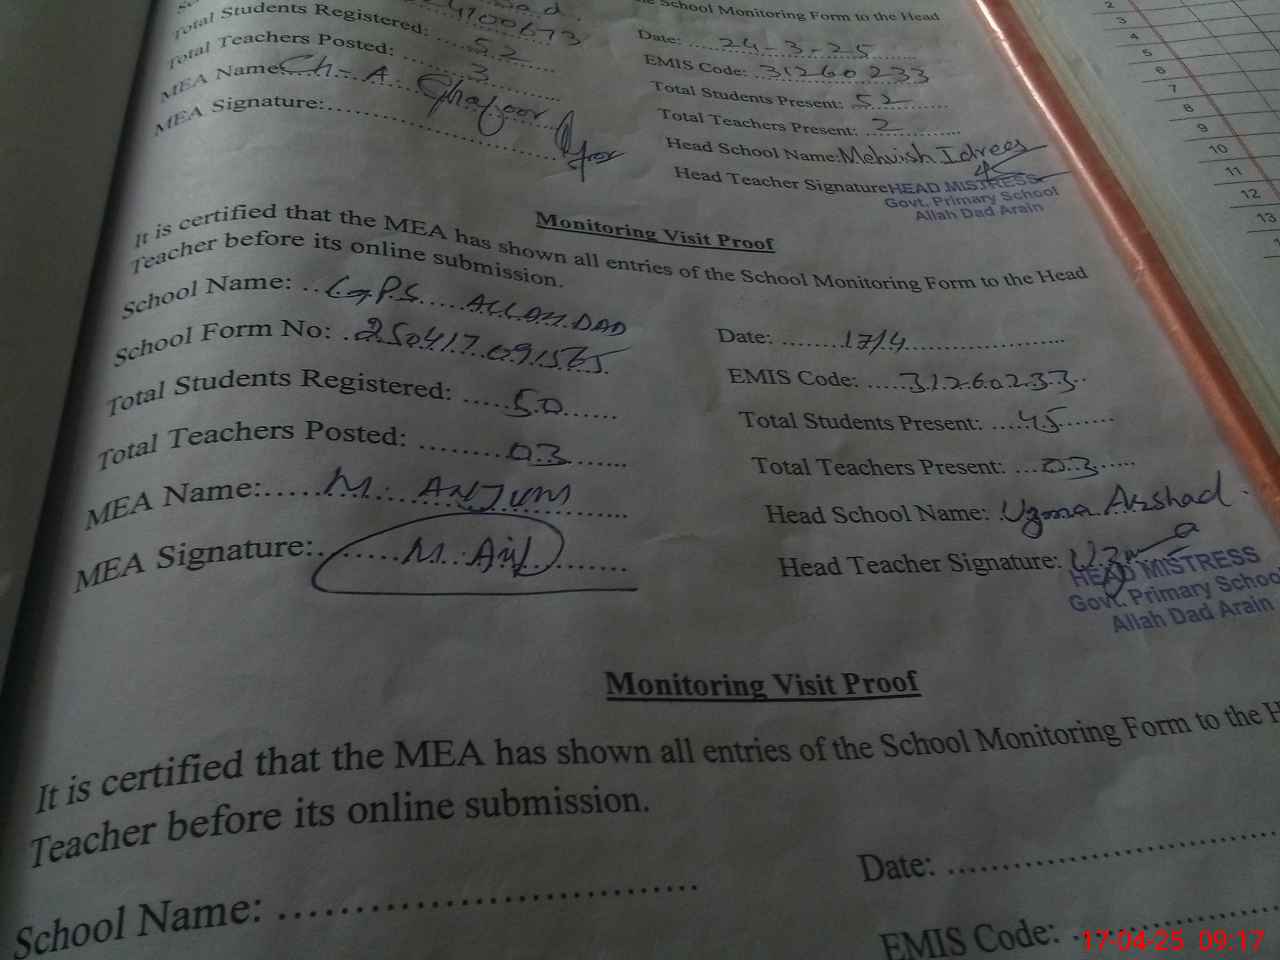 School Monitoring Form to the Head
Total Students Registered: 52
Date: 24-3-25
Total Teachers Posted: 3
EMIS Code: 31260233
MEA Name: Ch-A Ghafoor
Total Students Present: 52
MEA Signature:
Total Teachers Present: 2
Head School Name: Mehvish Idrees
Head Teacher Signature
HEAD MISTRESS
Govt. Primary School
Allah Dad Arain
Monitoring Visit Proof
It is certified that the MEA has shown all entries of the School Monitoring Form to the Head
Teacher before its online submission.
School Name: GPS ALLAH DAD
Date: 17/4
School Form No: 250417091565
EMIS Code: 31260233
Total Students Registered: 50
Total Students Present: 45
Total Teachers Posted: 03
Total Teachers Present: 03
MEA Name: M. ANJUM
Head School Name: Uzma Arshad
MEA Signature:
Head Teacher Signature: Uzma
HEAD MISTRESS
Govt. Primary School
Allah Dad Arain
Monitoring Visit Proof
It is certified that the MEA has shown all entries of the School Monitoring Form to the H
Teacher before its online submission.
School Name:
Date:
EMIS Code:
2
3
4
5
6
7
8
9
10
11
12
13
17-04-25 09:17